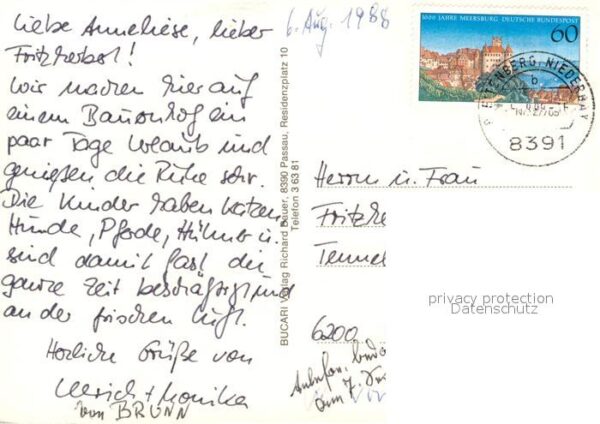 Liebe Anneliese, lieber
Fritzherbst!
Wir machen hier auf
einem Bauernhof ein
paar Tage Urlaub und
genießen die Ruhe sehr.
Die Kinder haben Katzen,
Hunde, Pferde, Hühner u.
sind damit fast die
ganze Zeit beschäftigt und
an der frischen Luft.
Herzliche Grüße von
Ulrich + Monika
von BRUNN
6. Aug. 1988
BUCARI Verlag Richard Bauer, 8390 Passau, Residenzplatz 10
Telefon 3 63 81
1000 JAHRE MEERSBURG DEUTSCHE BUNDESPOST
60
NIEDERBAY
b
8391
Herrn u. Frau
Fritzhe
Tennel
6200
privacy protection
Datenschutz